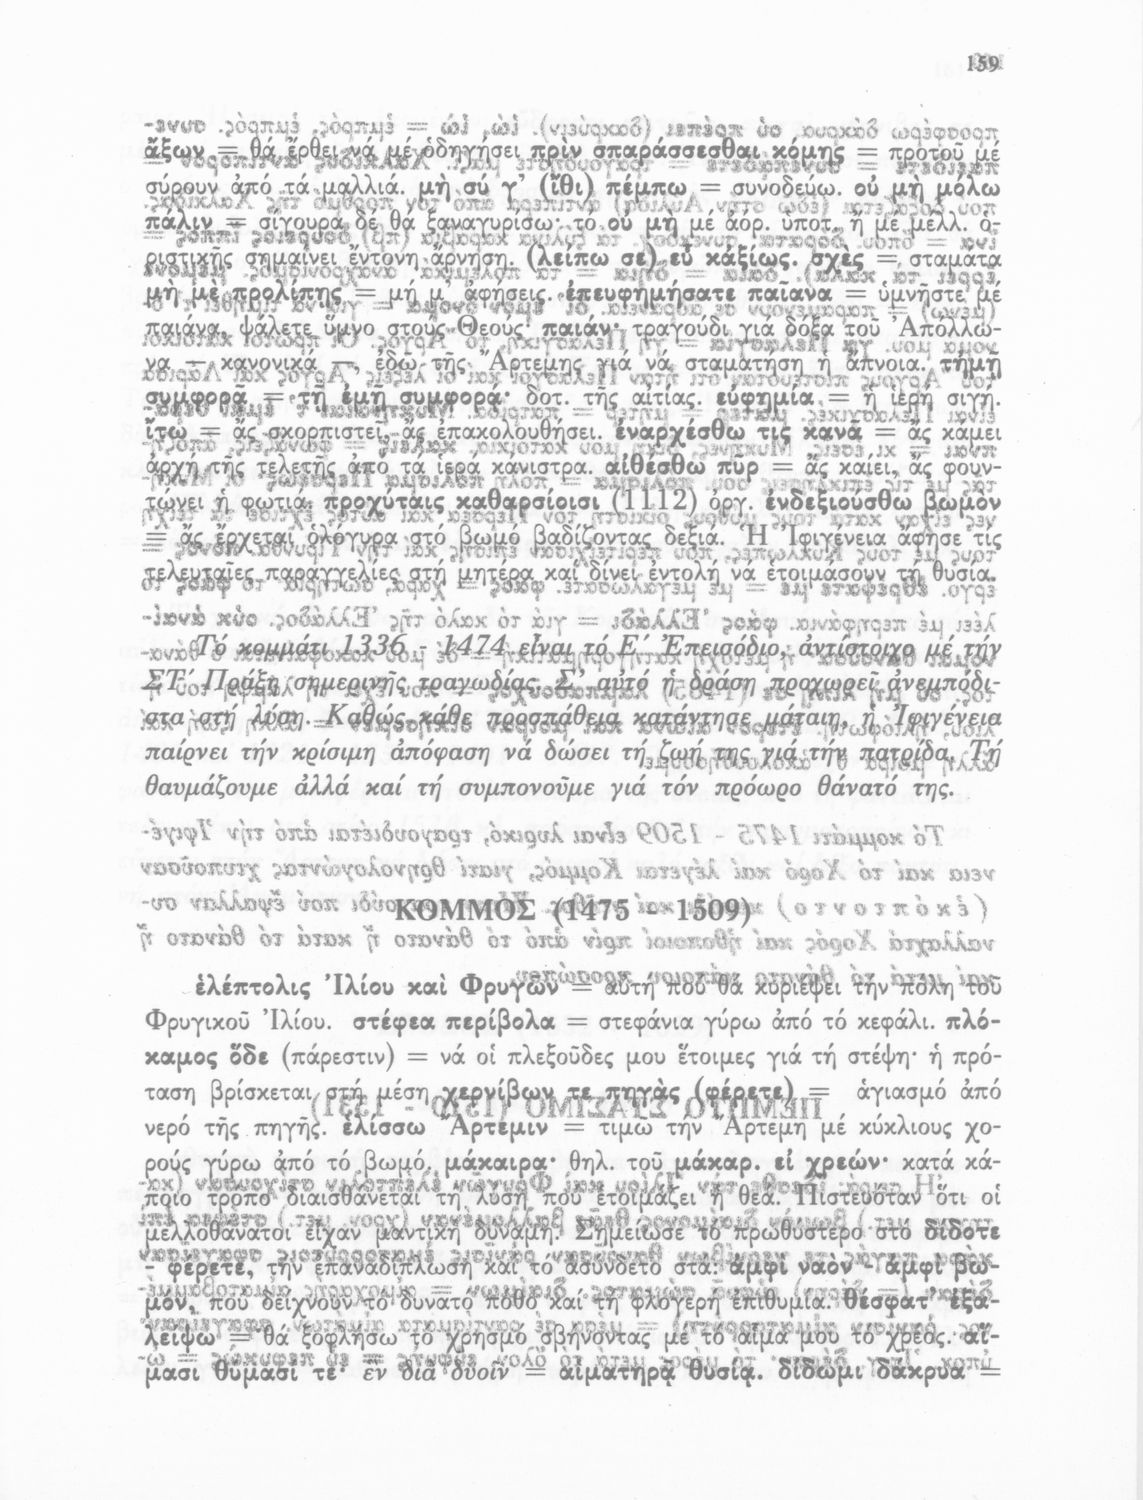 159
ἄξων = θά ἔρθει νά μέ ὁδηγήσει πρὶν σπαράσσεσθαι κόμης = προτοῦ μέ
σύρουν ἀπό τά μαλλιά. μὴ σύ γ' (ἴθι) πέμπω = συνοδεύω. οὐ μὴ μόλω
πάλιν = σίγουρα δέ θά ξαναγυρίσω· τό οὐ μὴ μέ ἀόρ. ὑποτ. ἤ μέ μέλλ. ὁ-
ριστικῆς σημαίνει ἔντονη ἄρνηση. (λείπω σέ) εὖ κἀξίως. σχὲς = σταμάτα
μὴ με προλίπῃς = μή μ' ἀφήσεις. ἐπευφημήσατε παιᾶνα = ὑμνῆστε μέ
παιάνα, ψάλετε ὕμνο στούς Θεούς· παιάν· τραγούδι γιά δόξα τοῦ Ἀπόλλω-
να — κανονικά —, ἐδῶ τῆς Ἄρτεμης γιά νά σταματήση ἡ ἄπνοια. τἠμῇ
συμφορᾷ = τῇ ἐμῇ συμφορᾷ· δοτ. τῆς αἰτίας. εὐφημία = ἡ ἱερή σιγή.
ἴτω = ἄς σκορπιστεῖ, ἄς ἐπακολουθήσει. ἐναρχέσθω τις κανᾶ = ἄς κάμει
ἀρχή τῆς τελετῆς ἀπό τά ἱερά κάνιστρα. αἰθέσθω πῦρ = ἄς καίει, ἄς φουν-
τώνει ἡ φωτιά· προχύταις καθαρσίοισι (1112) ὀργ. ἐνδεξιούσθω βωμὸν
= ἄς ἔρχεται ὁλόγυρα στό βωμό βαδίζοντας δεξιά. Ἡ Ἰφιγένεια ἄφησε τίς
τελευταῖες παραγγελίες στή μητέρα καί δίνει ἐντολή νά ἑτοιμάσουν τή θυσία.
Τό κομμάτι 1336 - 1474 εἶναι τό Ε΄ Ἐπεισόδιο, ἀντίστοιχο μέ τήν
ΣΤ΄ Πράξη σημερινῆς τραγωδίας. Σ' αὐτό ἡ δράση προχωρεῖ ἀνεμπόδι-
στα στή λύση. Καθώς κάθε προσπάθεια κατάντησε μάταιη, ἡ Ἰφιγένεια
παίρνει τήν κρίσιμη ἀπόφαση νά δώσει τή ζωή της γιά τήν πατρίδα. Τή
θαυμάζουμε ἀλλά καί τή συμπονοῦμε γιά τόν πρόωρο θάνατό της.
ΚΟΜΜΟΣ (1475 - 1509)
ἑλέπτολις Ἰλίου καὶ Φρυγῶν = αὐτή πού θά κυριέψει τήν πόλη τοῦ
Φρυγικοῦ Ἰλίου. στέφεα περίβολα = στεφάνια γύρω ἀπό τό κεφάλι. πλό-
καμος ὅδε (πάρεστιν) = νά οἱ πλεξοῦδες μου ἕτοιμες γιά τή στέψη· ἡ πρό-
ταση βρίσκεται στή μέση χερνίβων τε πηγάς (φέρετε) = ἁγιασμό ἀπό
νερό τῆς πηγῆς. ἑλίσσω Ἄρτεμιν = τιμῶ τήν Ἄρτεμη μέ κύκλιους χο-
ρούς γύρω ἀπό τό βωμό. μάκαιρα· θηλ. τοῦ μάκαρ. εἰ χρεών· κατά κά-
ποιο τρόπο διαισθάνεται τή λύση πού ἑτοιμάζει ἡ θεά. Πιστεύοταν ὅτι οἱ
μελλοθάνατοι εἶχαν μαντική δύναμη. Σημείωσε τό πρωθύστερο στό δίδοτε
- φέρετε, τήν ἐπαναδίπλωση καί τό ἀσύνδετο στά: ἀμφὶ ναόν - ἀμφὶ βω-
μόν, πού δείχνουν τό δυνατό πόθο καί τή φλογερή ἐπιθυμία. θέσφατ' ἐξα-
λείψω = θά ξοφλήσω τό χρησμό σβήνοντας μέ τό αἷμα μου τό χρέος. αἵ-
μασι θύμασί τε· ἓν διά δυοῖν = αἱματηρᾷ θυσίᾳ. δίδωμι δάκρυα =